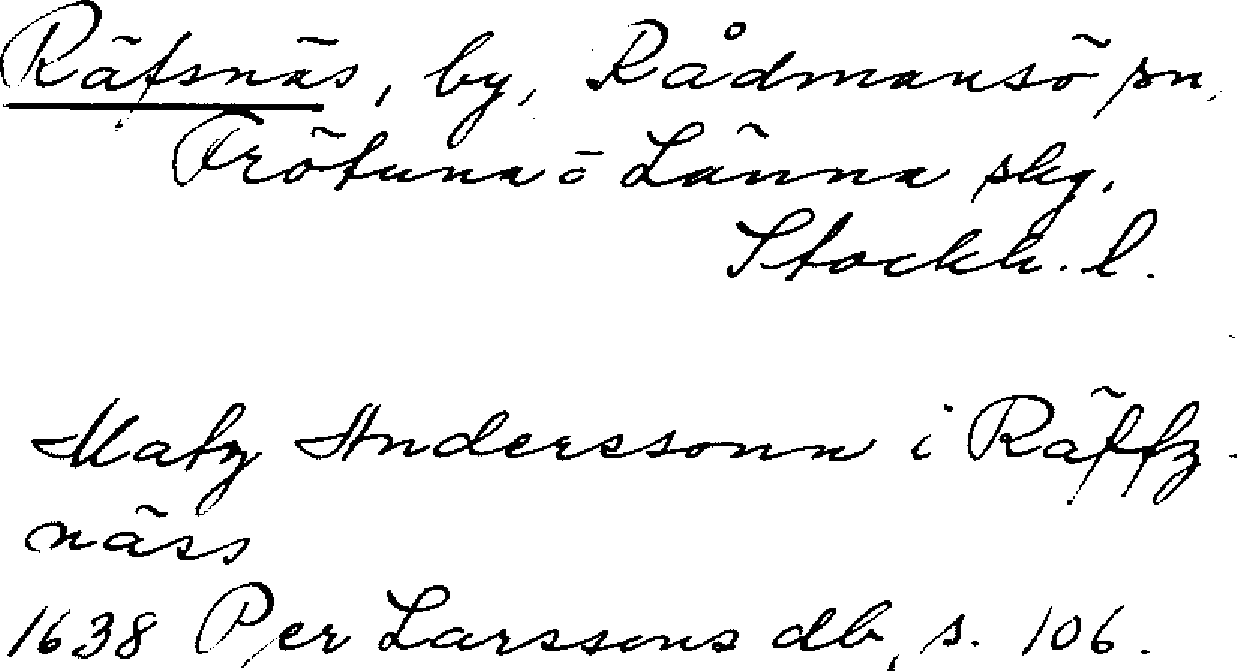 Räfsnäs, by, Rådmansö sn,
Frötuna o Länna skg.
Stockh. l.
Matz Anderssonn i Räffz-
näss
1638 Per Larssons db, s. 106.